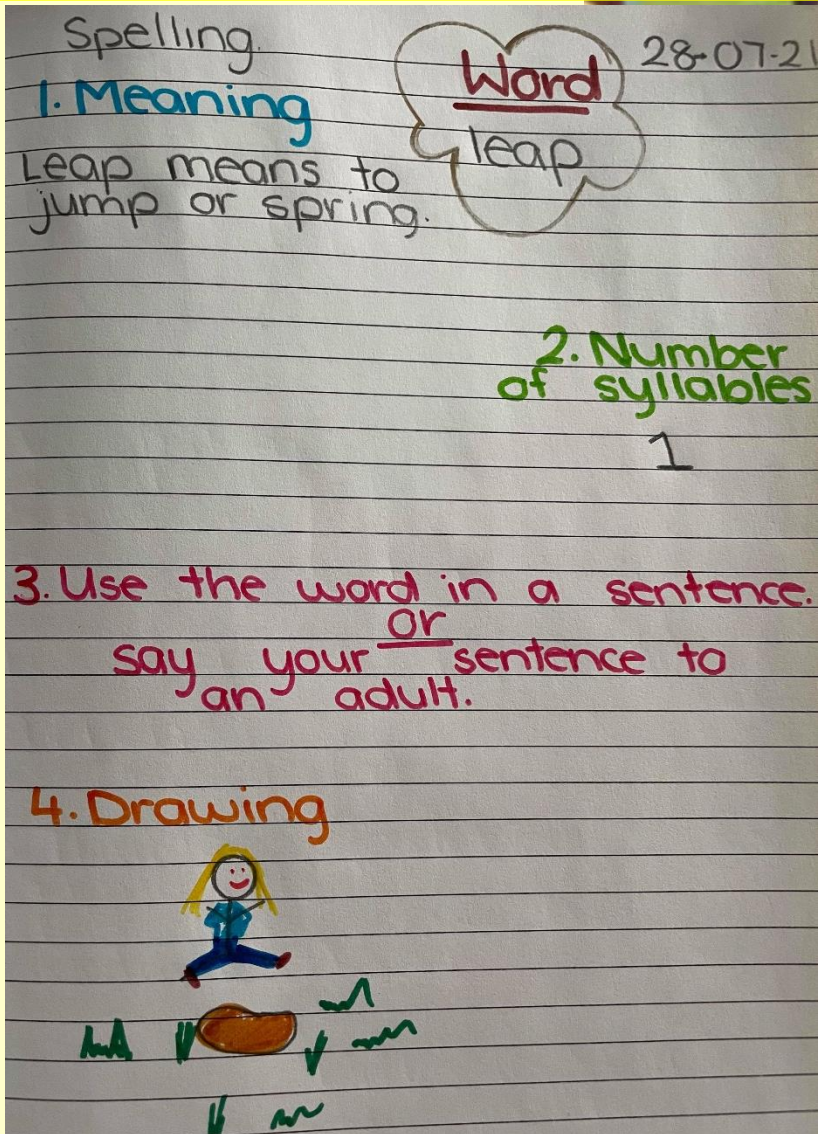 Spelling.
28-07-21
Word
leap
1. Meaning
Leap means to
jump or spring.
2. Number
of syllables
1
3. Use the word in a sentence.
or
say your sentence to
an adult.
4. Drawing